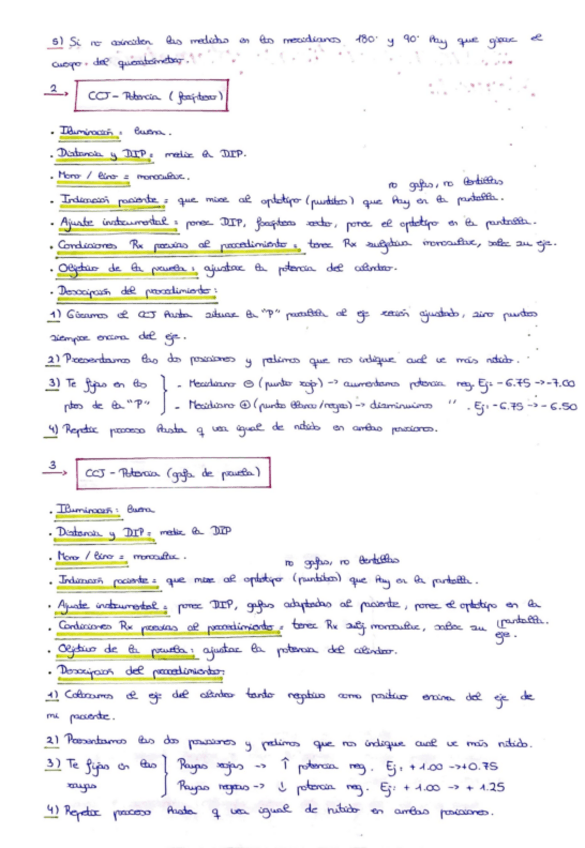 5) Si no coinciden las medidas en los meridianos 180° y 90° hay que girar el
cuerpo del queratómetro.
2 → CCJ - Potencia (foróptero)
· Iluminación: buena.
· Distancia y DIP: medir la DIP.
· Mono / bino = monocular.
no gafas, no lentillas
· Indicación paciente = que mire al optotipo (puntitos) que hay en la pantalla.
· Ajuste instrumental = poner DIP, foróptero recto, poner el optotipo en la pantalla.
· Condiciones Rx previas al procedimiento = tener Rx subjetiva monocular, saber su eje.
· Objetivo de la prueba: ajustar la potencia del cilindro.
· Descripción del procedimiento:
1) Giramos el CCJ hasta situar la "P" paralela al eje recién ajustado, sino puntos
siempre encima del eje.
2) Presentamos las dos posiciones y pedimos que nos indique cual ve más nítido.
3) Te fijas en los - Meridiano ⊖ (punto rojo) -> aumentamos potencia neg. Ej: -6.75 -> -7.00
ptos de la "P" - Meridiano ⊕ (punto blanco/negro) -> disminuimos " . Ej: -6.75 -> -6.50
4) Repetir proceso hasta q vea igual de nítido en ambas posiciones.
3 → CCJ - Potencia (gafa de prueba)
· Iluminación: buena
· Distancia y DIP: medir la DIP
· Mono / bino = monocular.
no gafas, no lentillas
· Indicación paciente = que mire al optotipo (puntitos) que hay en la pantalla.
· Ajuste instrumental = poner DIP, gafas adaptadas al paciente, poner el optotipo en la
pantalla.
· Condiciones Rx previas al procedimiento = tener Rx subj monocular, saber su
eje.
· Objetivo de la prueba: ajustar la potencia del cilindro.
· Descripción del procedimiento:
1) Colocamos el eje del cilindro tanto negativo como positivo encima del eje de
mi paciente.
2) Presentamos las dos posiciones y pedimos que nos indique cual ve más nítido.
3) Te fijas en las Rayas rojas -> ↑ potencia neg. Ej: +1.00 -> +0.75
rayas Rayas negras -> ↓ potencia neg. Ej: +1.00 -> +1.25
4) Repetir proceso hasta q vea igual de nítido en ambas posiciones.